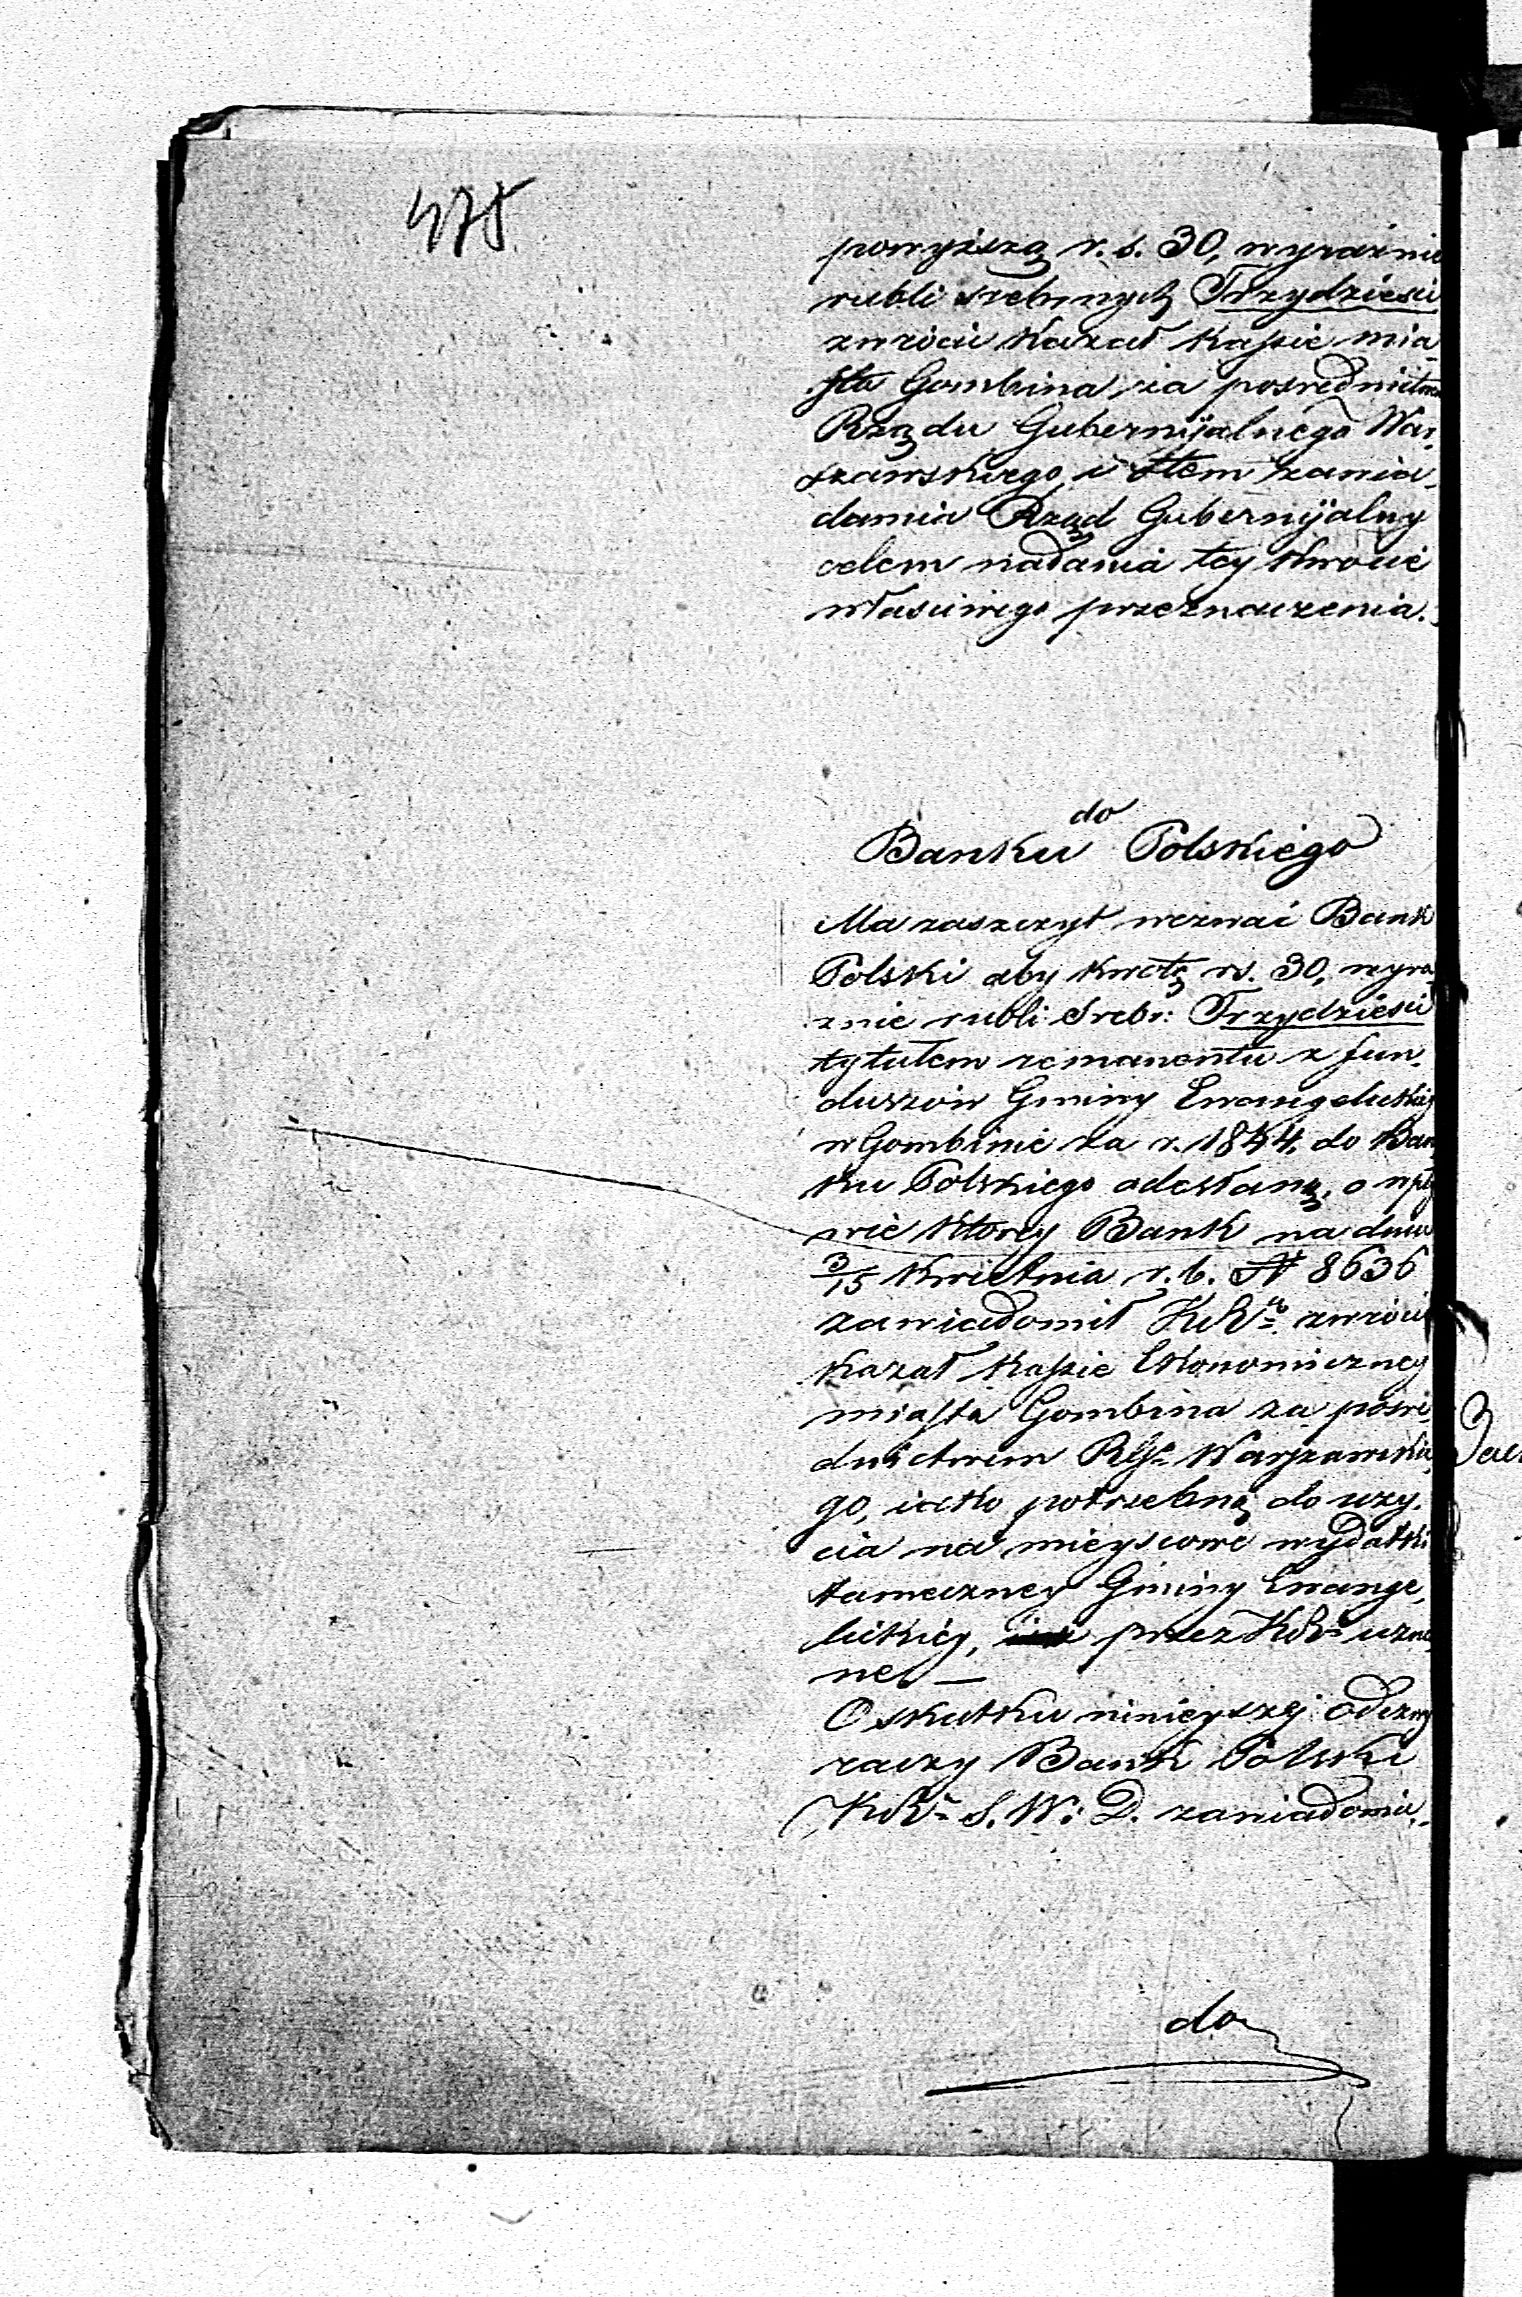 475
powyższą r. s. 30, wyraźnie
rubli srebrnych Trzydzieści
zwrócić kazał Kassie mia-
sta Gombina za pośrednictwem
Rządu Gubernijalnego War-
szawskiego, i o tem zawia-
damia Rząd Gubernijalny
celem nadania tey kwocie
właściwego przeznaczenia.
do
Banku Polskiego
Ma zaszczyt wezwać Bank
Polski aby kwotę rs. 30, wyra-
źnie rubli Srebr: Trzydzieści
tytułem remanentu z fun-
duszów Gminy Ewangelickiej
w Gombinie za r. 1844. do Ban-
ku Polskiego odesłaną, o wpły-
wie którey Bank na dniu
3/15 Kwietnia r. b. N 8636
zawiadomił zwrócić
kazał Kassie Ekonomiczney
miasta Gombina za pośre-
dnictwem Warszawskie-
go, iako potrzebną do uży-
cia na mieyscowe wydatki
tameczney Gminy Ewange-
lickiey, przez uzna-
ne. —
O skutku ninieyszej odezwy
raczy Bank Polski
S. W. D. zawiadomić.
do